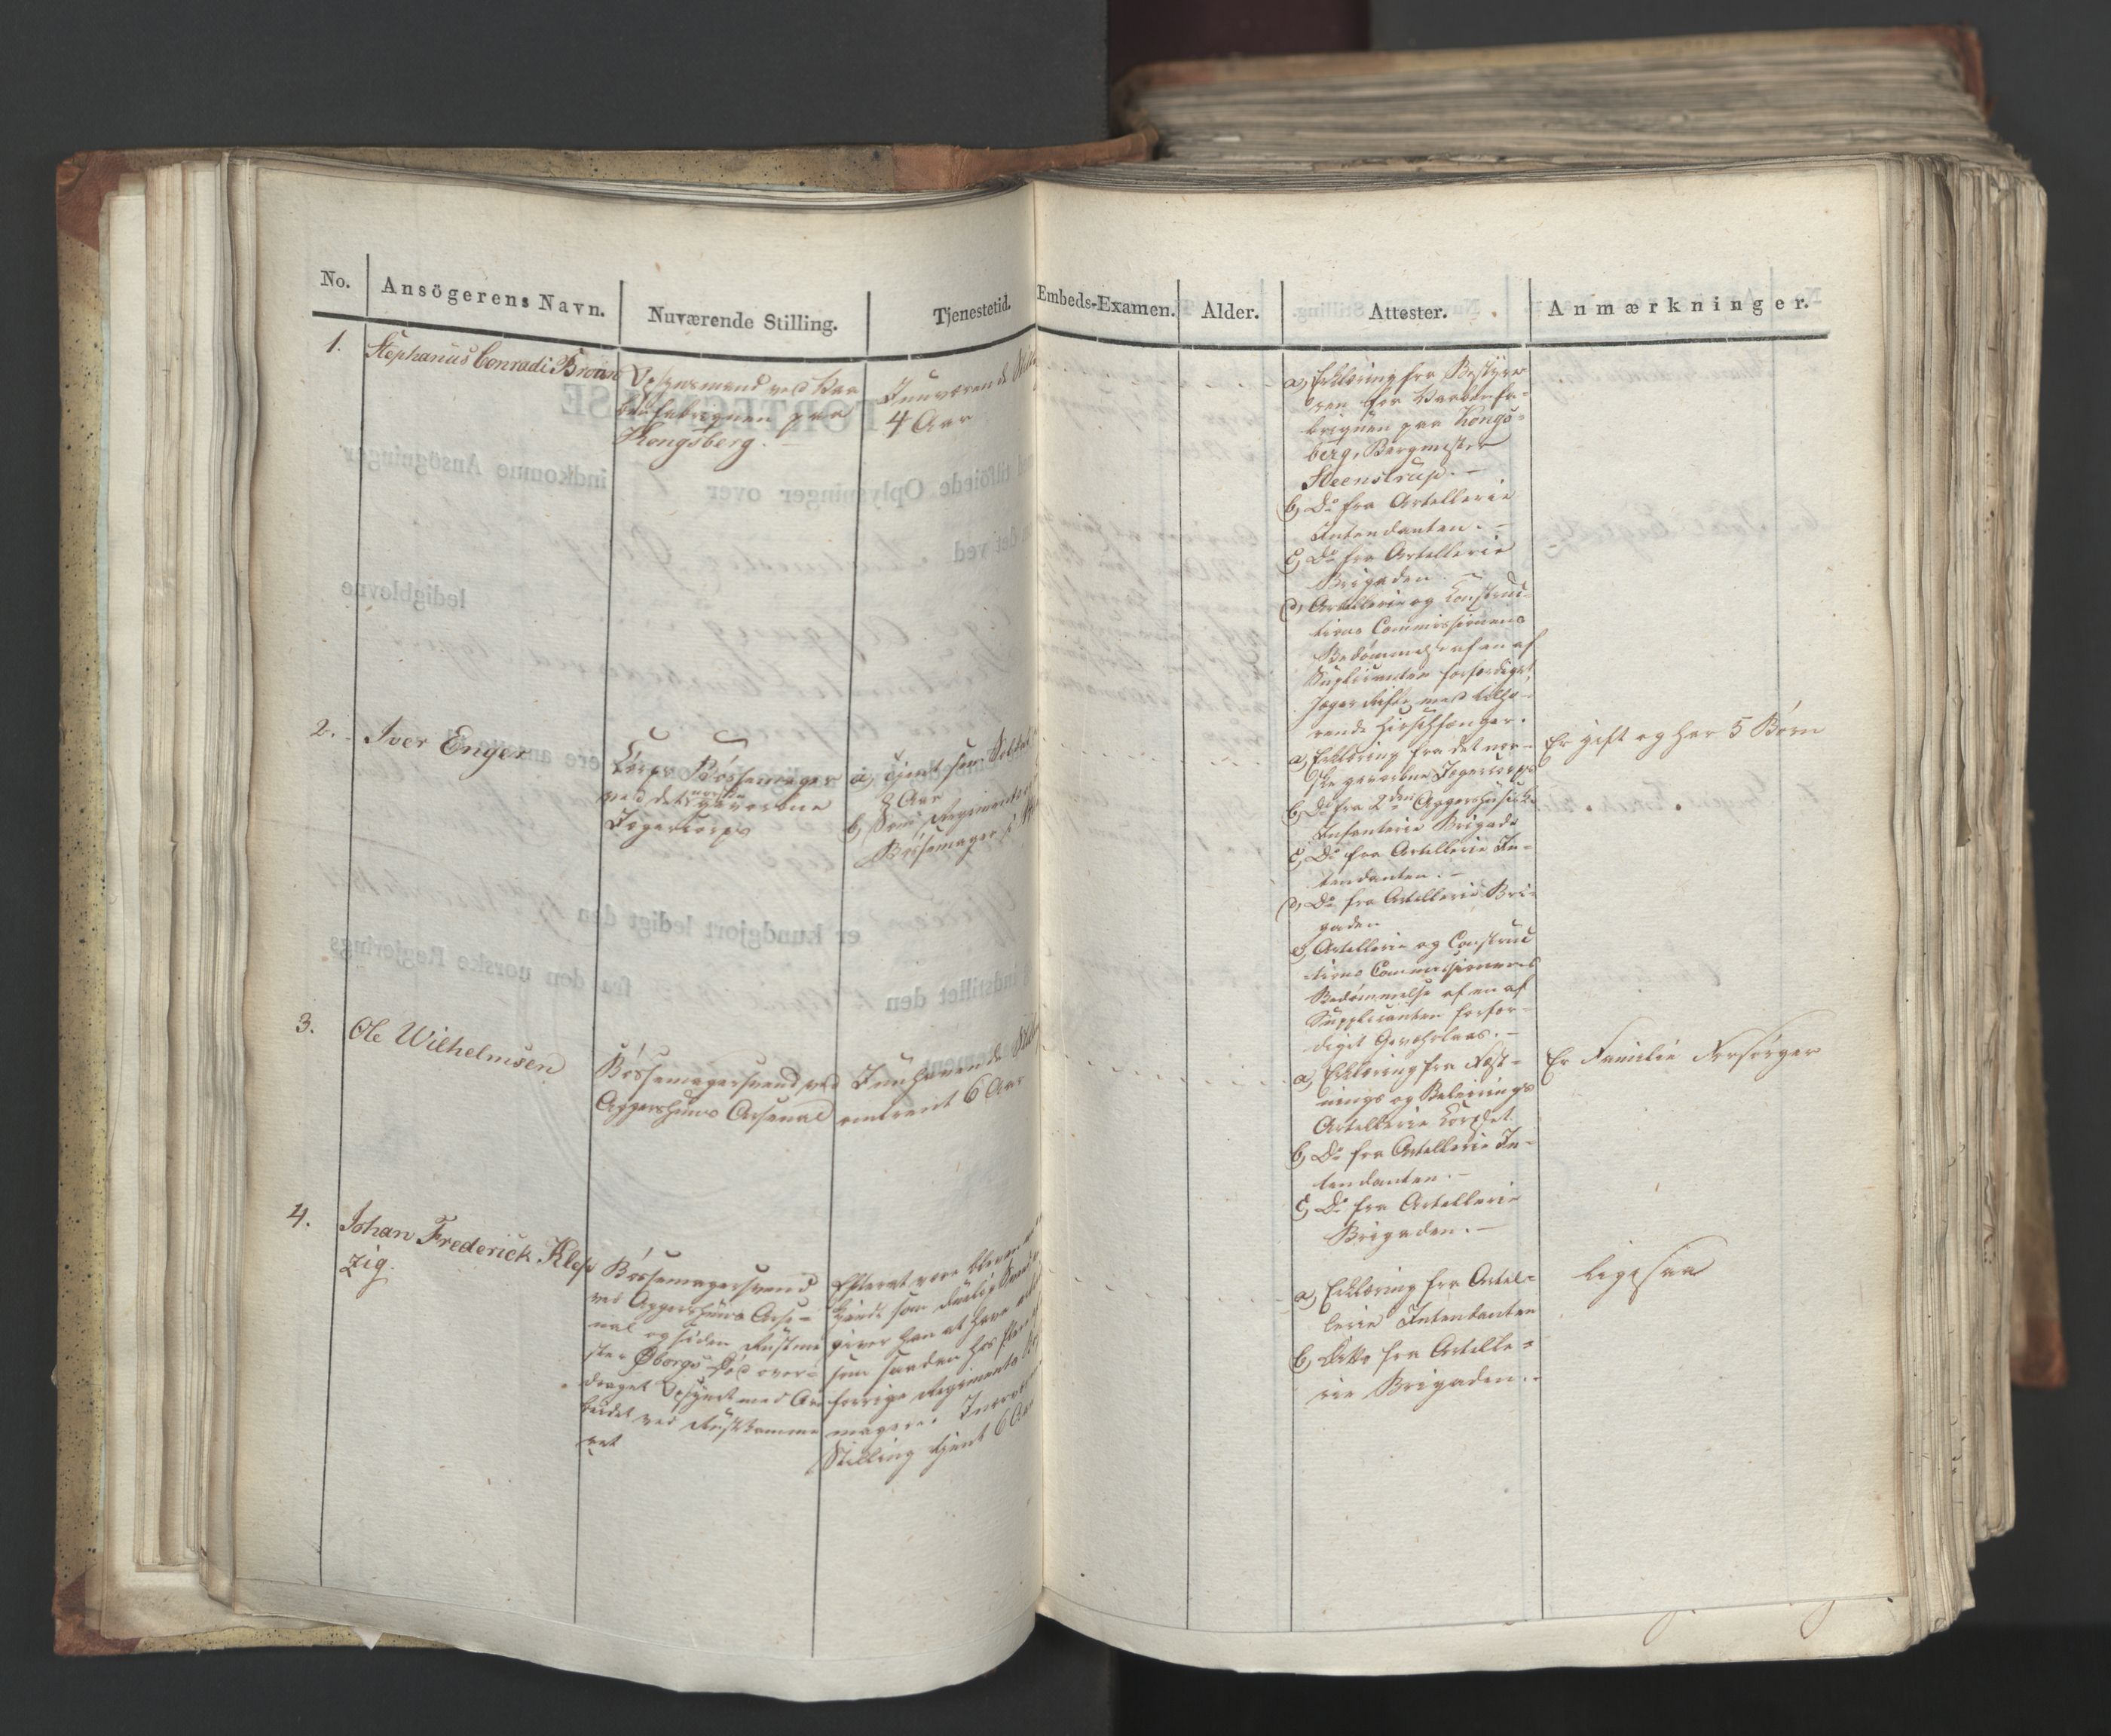 No.
Ansögerens Navn.
Nuværende Stilling.
Tjenestetid.
Embeds-Examen.
Alder.
Attester.
Anmærkninger.
1.
Stephanus Conradi Bronn
Opsynsmand ved Vaa
benfabriquen paa
Kongsberg. –
I nuværende
4 Aar
a, Erklæring fra Bestyre
ren for Vaabenfa-
briquen paa Kongs-
berg, Bergmester
Steenstrup. –
b, Do fra Artillerie
Intendanten. –
c, Do fra Artillerie
Brigaden. –
d, Artillerie og Construc
tions Commissionens
Bedømmelse af en af
Suplicanten forfærdiget
Jæger Riffel med tilhø-
rende Hirschfænger.
2.
Iver Enger
Corps Bøssemager
ved det norske gevorbne
Jægercorps
a, Tjent som Soldat
8 Aar
b, Som Regiments
Bøssemager i
a, Erklæring fra det nor-
ske gevorbne Jægercorps
b, Do fra 2den Aggershuusiske
Infanterie Brigade
c, Do fra Artillerie In-
tendanten. –
d, Do fra Artillerie Bri
gaden
e, Artillerie og Construc
tions Commissionens
Bedømmelse af en af
Supplicanten forfær-
diget Geværlaas. –
Er gift og har 5 Børn
3.
Ole Wilhelmsen
Bøssemagersvend ved
Aggershuus Arsenal
I nuhavende
omtrent 6 Aar
a, Erklæring fra Fæst-
nings og Beleirings
Artillerie Corpset.
b, Do fra Artillerie In-
tendanten. –
c, Do fra Artillerie
Brigaden. –
Er Familie Forsørger
4.
Johan Frederick Klep
zig.
Bøssemagersvend
ved Aggershuus Arse-
nal og siden Rustme
ster Øbergs Død over-
draget Opsynet med Ar
beidet ved Rustkamme
ret
Efterat være bleven
kjendt som duelig Svend
giver han at have
som saadan hos flere af
forrige Regiments
magere. I nuværende
Stilling tjent 6 Aar
a, Erklæring fra Artil-
lerie Intendanten
b, Ditto fra Artille-
rie Brigaden. –
ligesaa